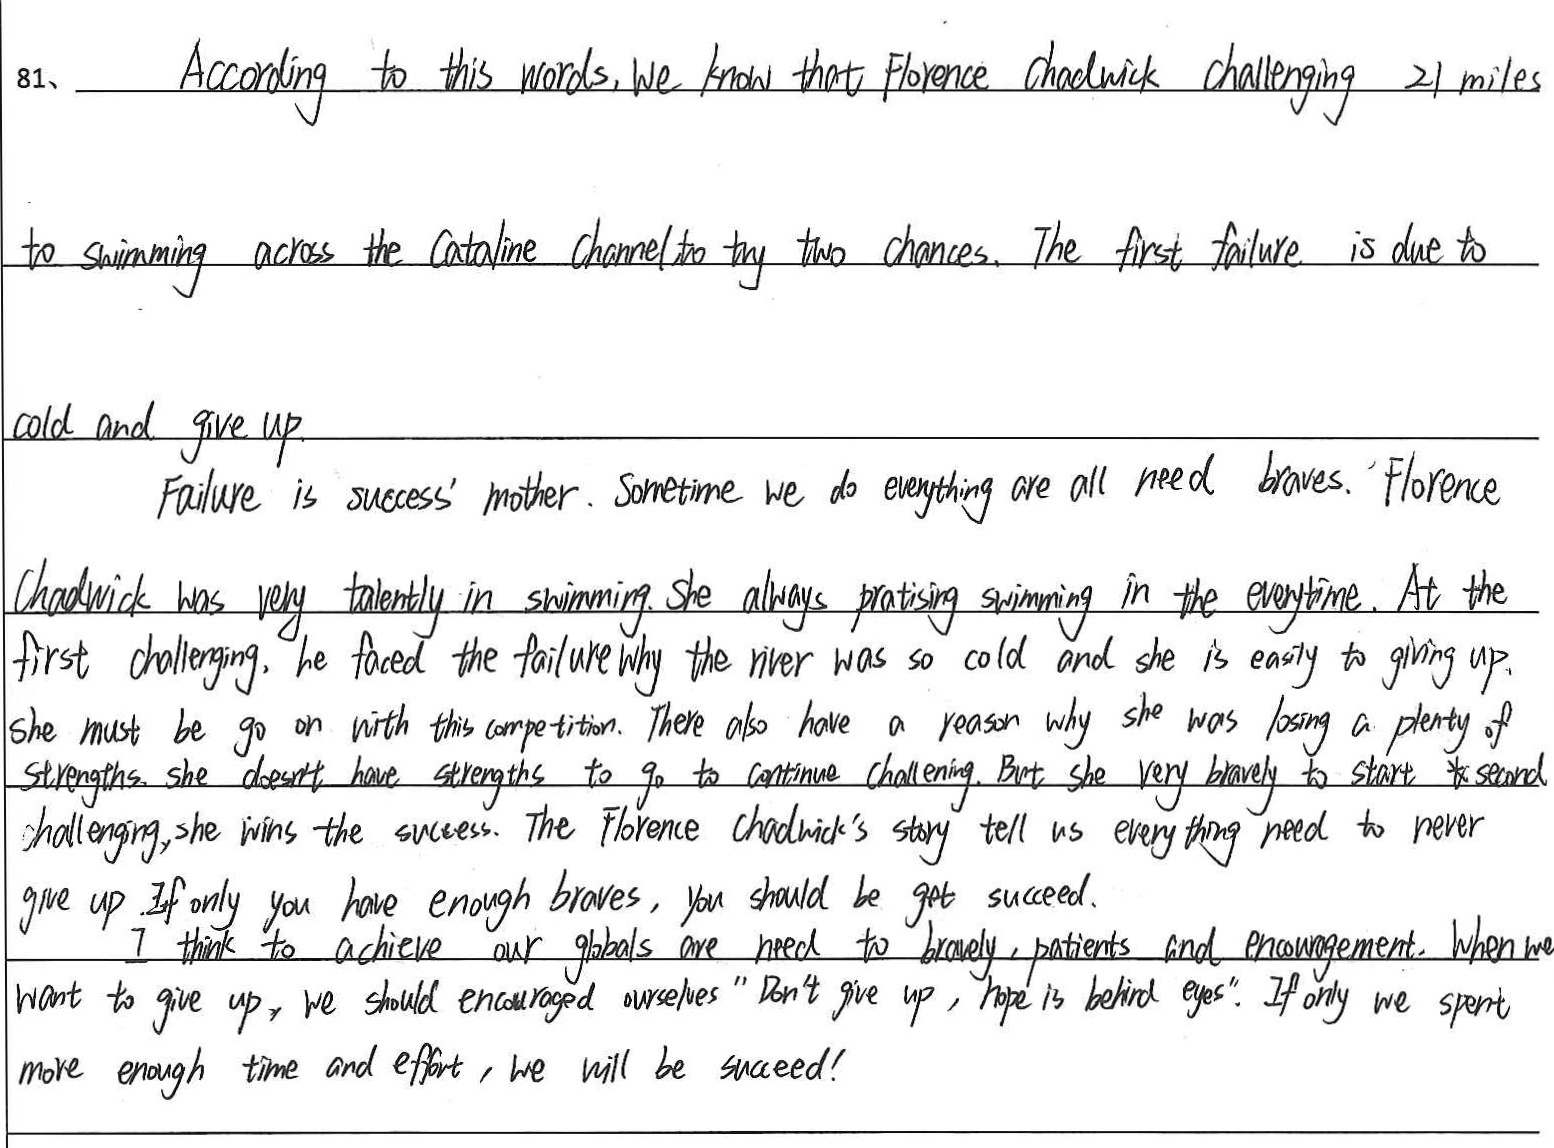 81、 According to this words, We know that Florence Chadwick challenging 21 miles
to swimming across the Cataline Channel, to try two chances. The first failure is due to
cold and give up.
Failure is success' mother. Sometime we do everything are all need braves. Florence
Chadwick was very talently in swimming. She always pratising swimming in the everytime. At the
first challenging, he faced the failure why the river was so cold and she is easily to giving up.
she must be go on with this competition. There also have a reason why she was losing a plenty of
strengths. she doesn't have strengths to go to continue challening. But she very bravely to start second
challenging, she wins the success. The Florence Chadwick's story tell us everything need to never
give up. If only you have enough braves, you should be get succeed.
I think to achieve our globals are need to bravely, patients and encouragement. When we
want to give up, we should encouraged ourselves "Don't give up, hope is behind eyes". If only we spent
more enough time and effort, we will be succeed!